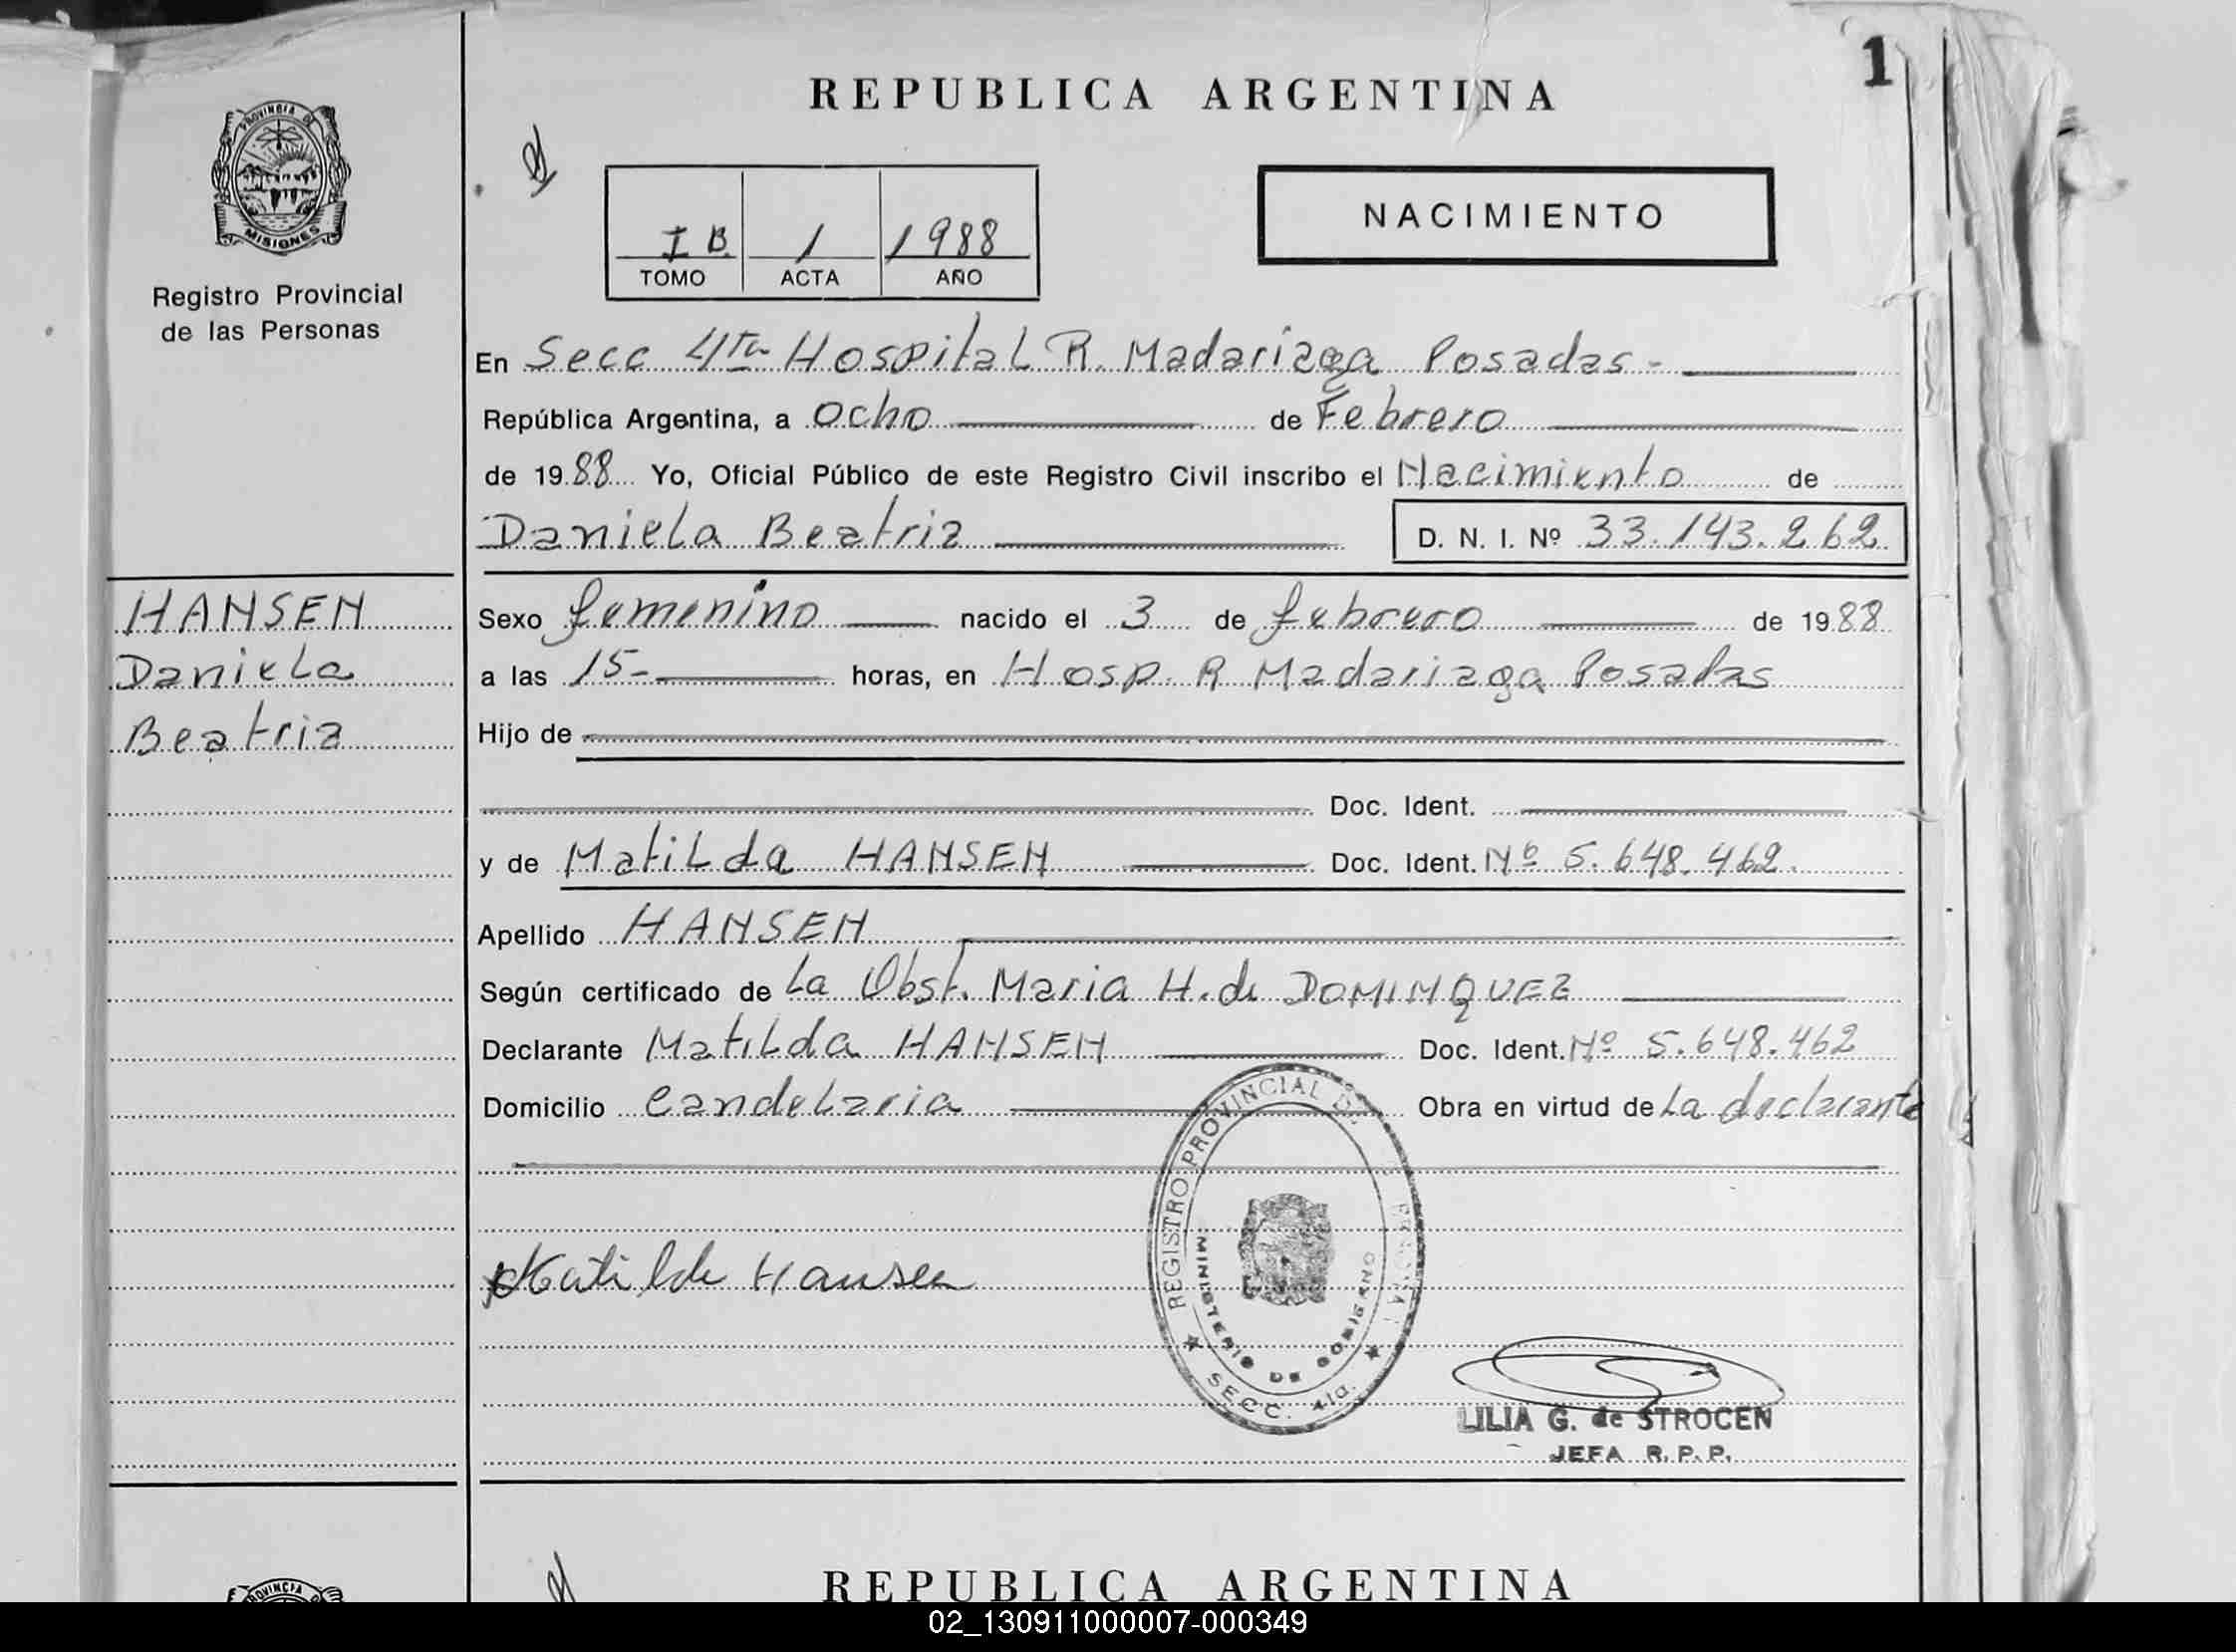 1
REPUBLICA ARGENTINA
PROVINCIA DE
MISIONES
Registro Provincial
de las Personas
I B. 1 1988
TOMO ACTA AÑO
NACIMIENTO
En Secc 4ta Hospital R. Madariaga Posadas-
República Argentina, a ocho de Febrero
de 1988 Yo, Oficial Público de este Registro Civil inscribo el Nacimiento de
Daniela Beatriz D. N. I. Nº 33.143.262
HANSEN
Daniela
Beatriz
Sexo femenino nacido el 3 de febrero de 1988
a las 15- horas, en Hosp. R Madariaga Posadas
Hijo de
Doc. Ident.
y de Matilda HANSEN Doc. Ident. Nº 5.648.462.
Apellido HANSEN
Según certificado de La Obst. Maria H. de DOMINQUEZ
Declarante Matilda HANSEN Doc. Ident. Nº 5.648.462
Domicilio Candelaria Obra en virtud de La declarante
Matilde Hansen
REGISTRO PROVINCIAL DE
MINISTERIO DE GOBIERNO
SECC. 4ta.
LILIA G. de STROCEN
JEFA R. P. P.
PROVINCIA
REPUBLICA ARGENTINA
02_130911000007-000349